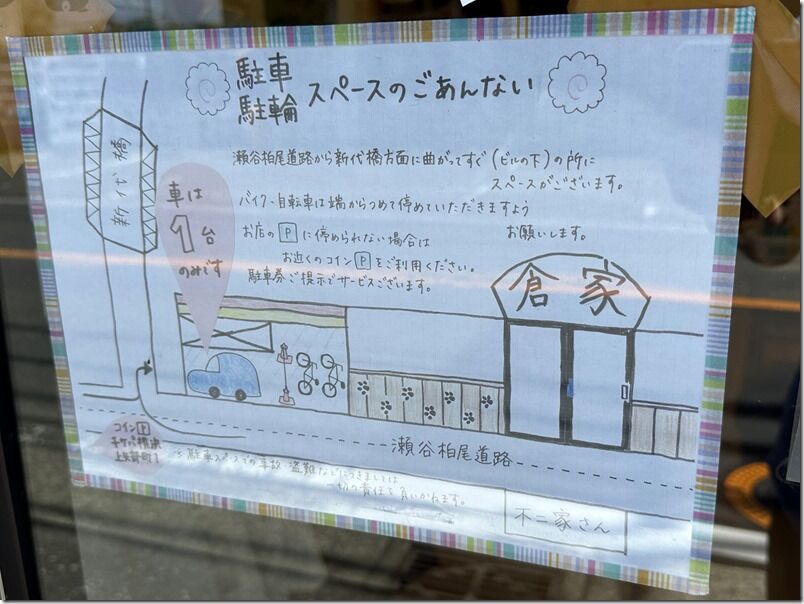 駐車
駐輪 スペースのごあんない
瀬谷柏尾道路から新代橋方面に曲がってすぐ(ビルの下)の所に
スペースがございます。
バイク・自転車は端からつめて停めていただきますよう
お願いします。
お店の P に停められない場合は
お近くのコイン P をご利用ください。
駐車券ご提示でサービスございます。
新代橋
車は
1台
のみです
倉家
コイン P
横浜
上矢部町1
瀬谷柏尾道路
※駐車スペースでの事故・盗難などにつきましては
一切の責任を負いかねます。
不二家さん